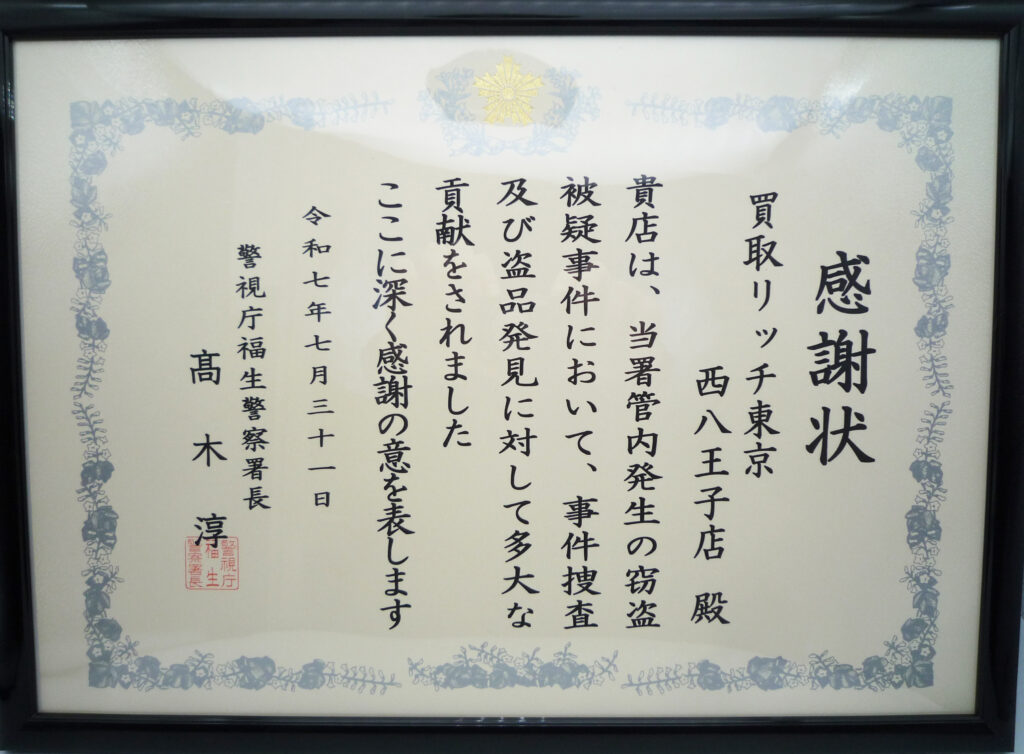 感謝状
買取リッチ東京
西八王子店 殿
貴店は、当署管内発生の窃盗
被疑事件において、事件捜査
及び盗品発見に対して多大な
貢献をされました
ここに深く感謝の意を表します
令和七年七月三十一日
警視庁福生警察署長
髙木淳
警視庁
福生
警察署長